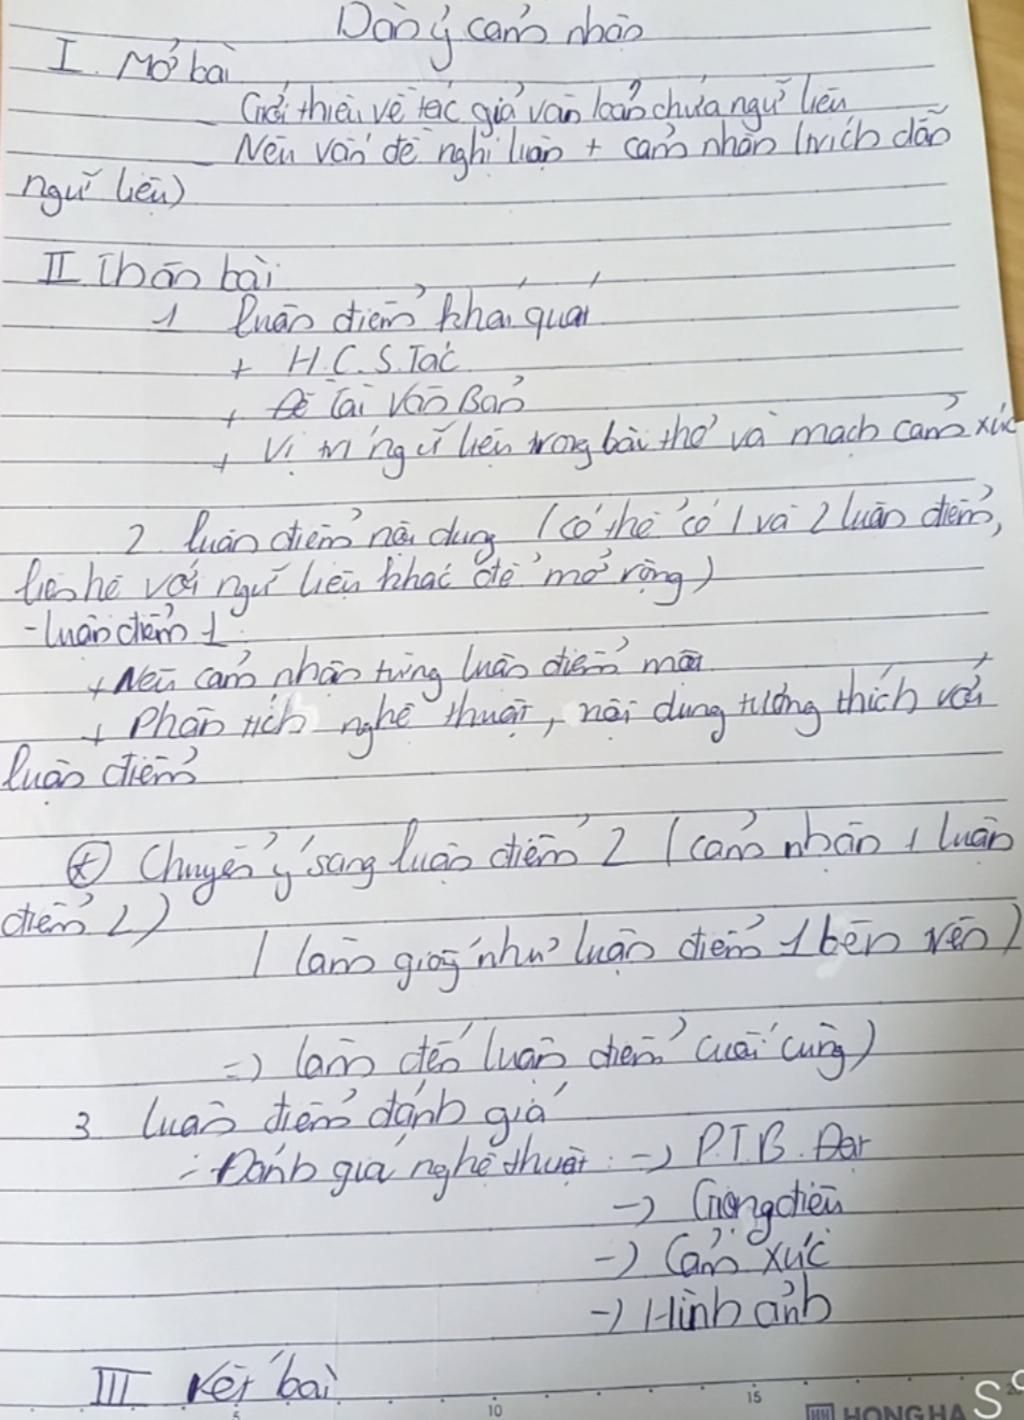 Dàn ý cảm nhận
I. Mở bài
- Giới thiệu về tác giả văn bản chứa ngữ liệu
- Nêu vấn đề nghị luận + cảm nhận (trích dẫn
ngữ liệu)
II Thân bài
1 luận điểm khái quát
+ H.C.S.Tác
+ Đề Tài Văn Bản
+ Vị trí ngữ liệu trong bài thơ và mạch cảm xúc
2. luận điểm nội dung (có thể có 1 và 2 luận điểm,
liên hệ với ngữ liệu khác để mở rộng)
- luận điểm 1
+ Nêu cảm nhận từng luận điểm một
+ Phân tích nghệ thuật, nội dung tương thích với
luận điểm
* Chuyển ý sang luận điểm 2 (cảm nhận luận
điểm 2)
(làm giống như luận điểm 1 bên trên)
=) làm đến luận điểm cuối cùng)
3 luận điểm đánh giá
- Đánh giá nghệ thuật: -) P.T.B.Đạt
-) Giọng điệu
-) Cảm xúc
-) Hình ảnh
III Kết bài
5 10 15 20
HH HONG HA S